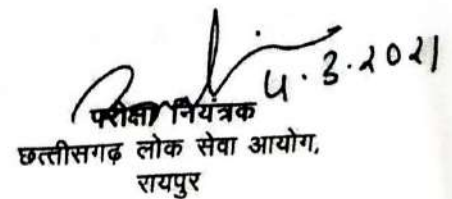 4.3.2021
परीक्षा नियंत्रक
छत्तीसगढ़ लोक सेवा आयोग,
रायपुर